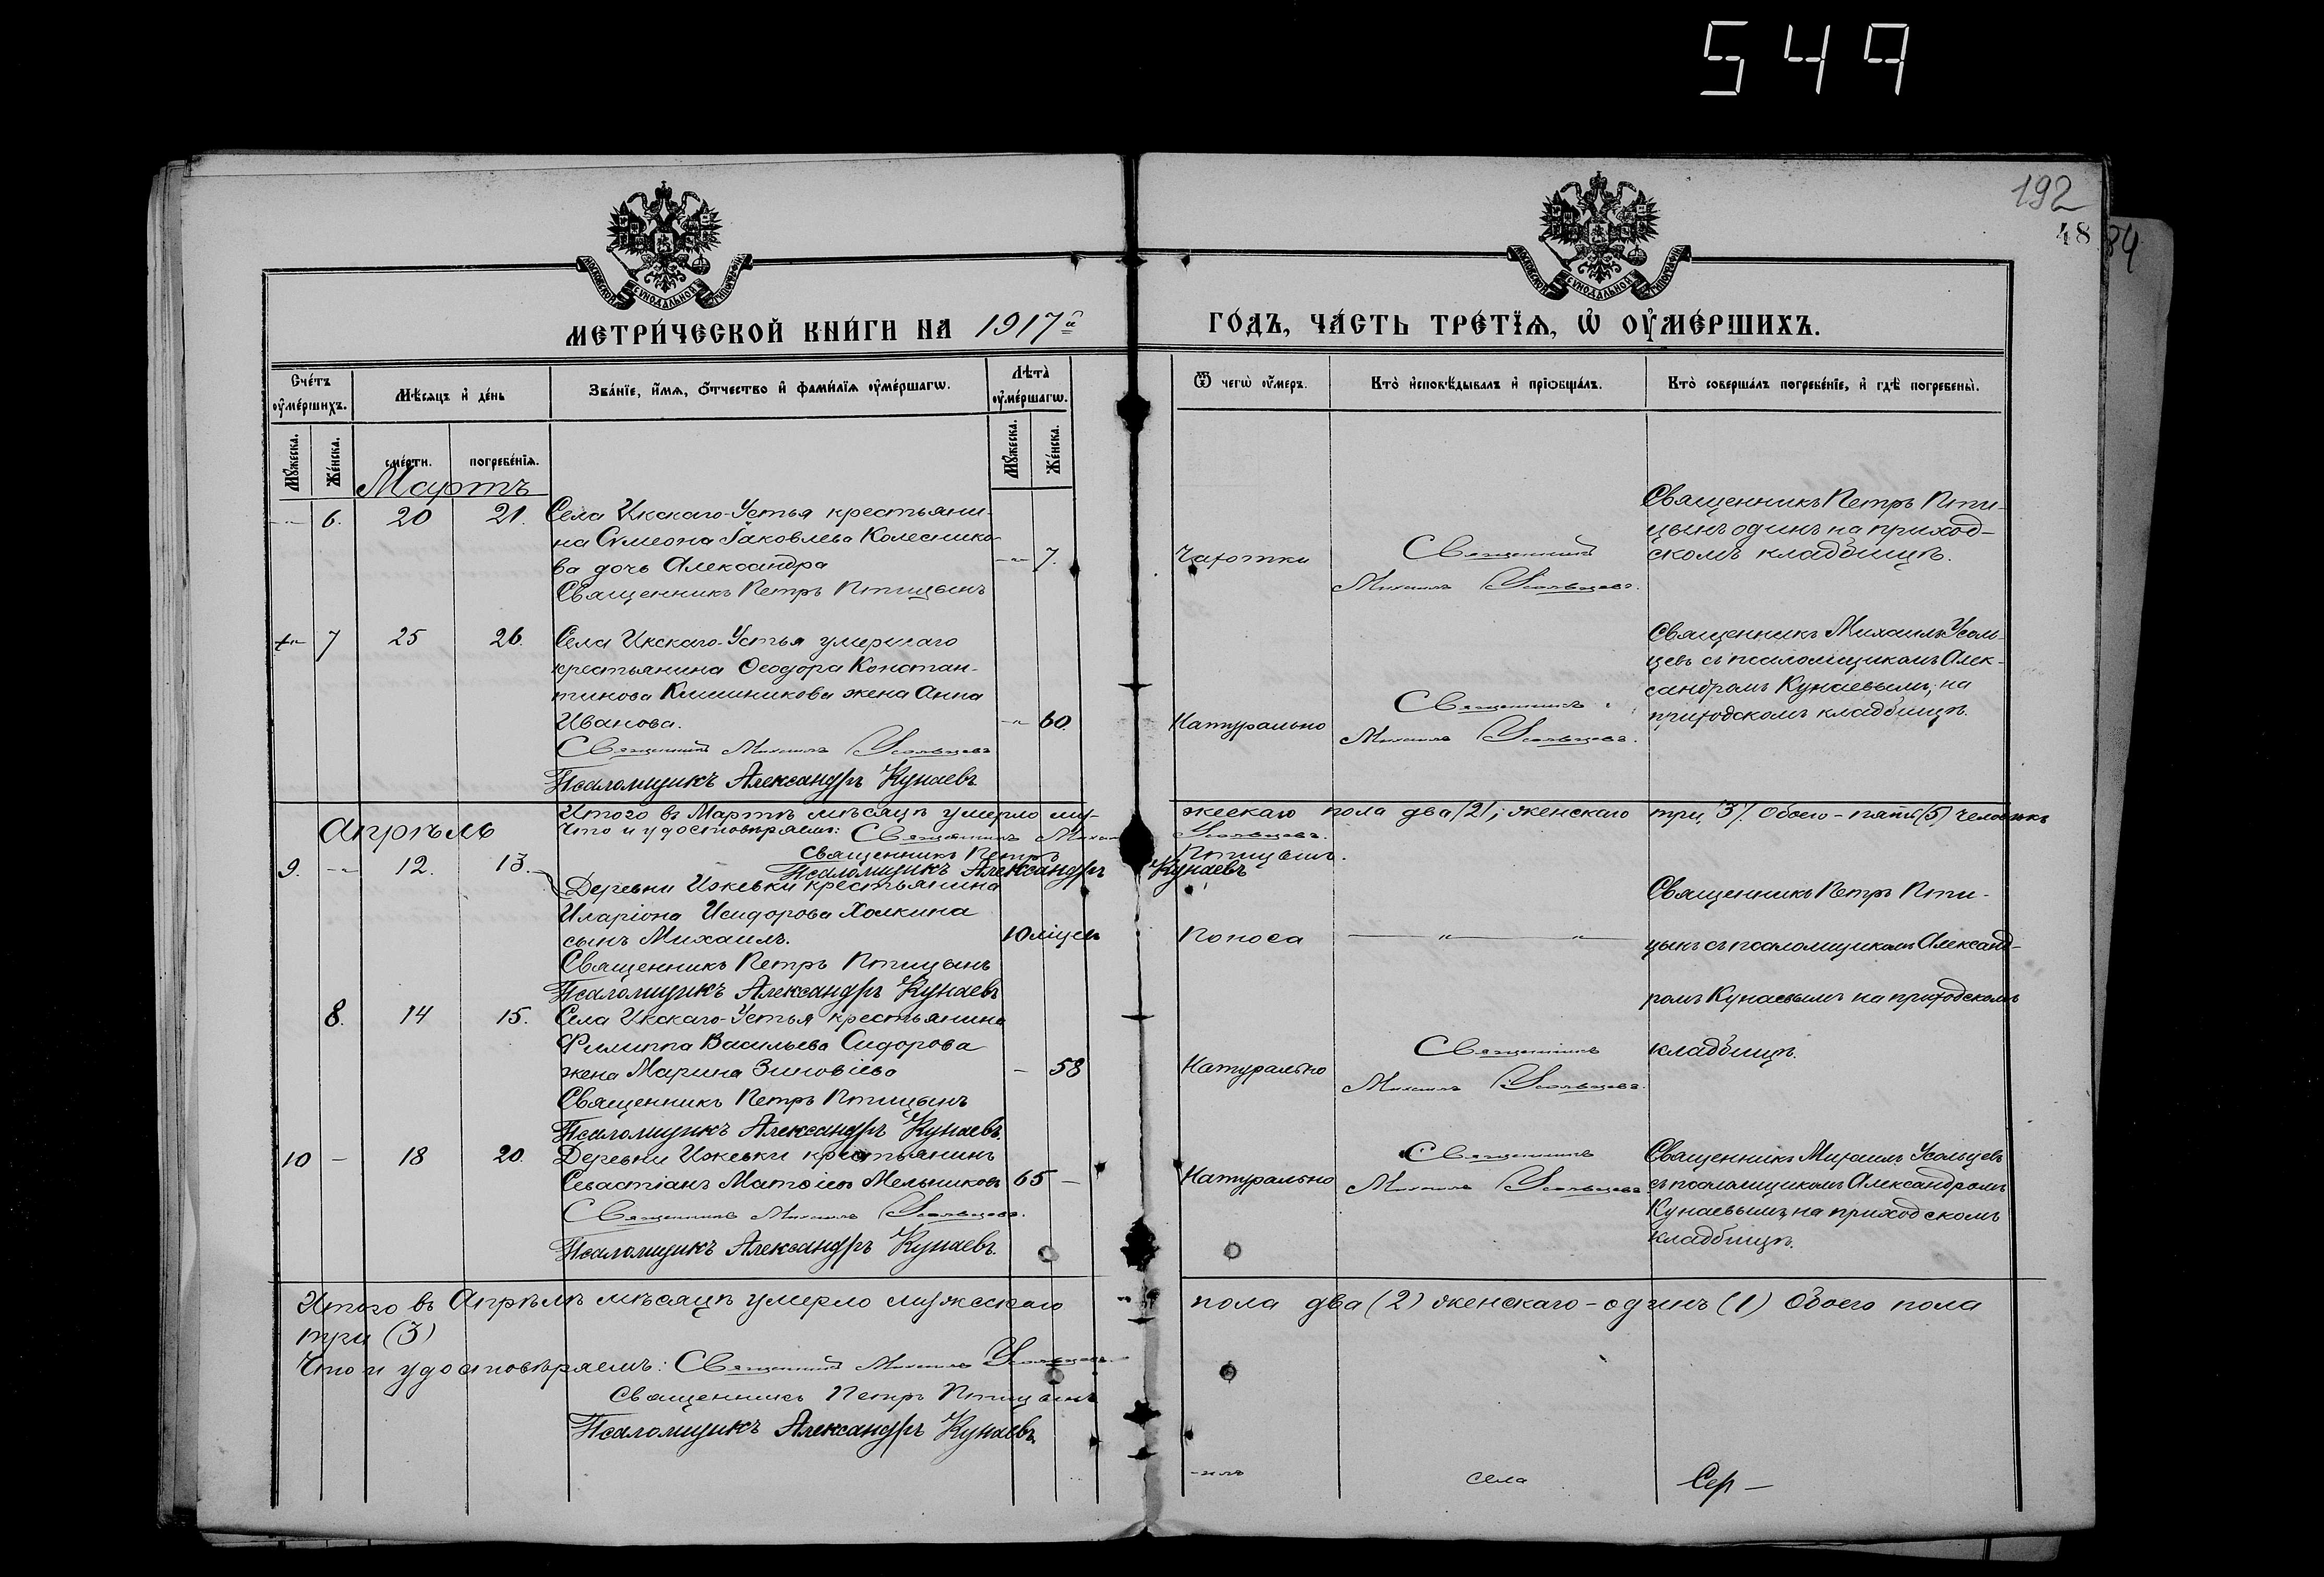 549
192
48
34
МОСКОВСКОЙ СѴНОДАЛЬНОЙ ТИПОГРАФІИ
МОСКОВСКОЙ СѴНОДАЛЬНОЙ ТИПОГРАФІИ
МЕТРИ́ЧЕСКОЙ КНИ́ГИ НА 1917й
ГО́ДЪ, ЧА́СТЬ ТРЕ́ТЇѦ, Ѡ҆ ОУ҆МЕ́РШИХЪ.
Сче́тъ оу҆ме́ршихъ.
Мѣ́сяцъ и҆ де́нь
Зва́нїе, и҆́мѧ, ѻ҆́тчество и҆ фами́лїѧ оу҆ме́ршагѡ.
Лѣта̀ оу҆ме́ршагѡ.
Ѿ чегѡ̀ оу҆́меръ.
Кто̀ и҆сповѣ́дывалъ и҆ прїѻбща́лъ.
Кто̀ соверша́лъ погребе́нїе, и҆ гдѣ̀ погребены̀.
Мꙋ́жеска.
Же́нска.
сме́рти.
погребе́нїѧ.
Мꙋ́жеска.
Же́нска.
Мартъ
-"- 6. 20 21. Села Икскаго-Устья крестьяни-
на Сѵмеона Іаковлева Колеснико-
ва дочь Александра -"- 7.
Священникъ Петръ Птицынъ
Чахотки
Священникъ
Михаилъ Усольцевъ.
Священникъ Петръ Пти-
цынъ одинъ на приход-
скомъ кладбищѣ.
-"- 7 25 26. Села Икскаго-Устья умершаго
крестьянина Ѳеодора Констан-
тинова жена Анна
Иванова. -"- 60.
Священникъ Михаилъ Усольцевъ
Псаломщикъ Александръ Кунаевъ
Натурально
Священникъ
Михаилъ Усольцевъ.
Священникъ Михаилъ Усоль-
цевъ съ псаломщикомъ Алек-
сандромъ Кунаевымъ, на
приходскомъ кладбищѣ.
Итого въ Мартѣ мѣсяцѣ умерло му-
жескаго пола два (2), женскаго три (3). Обоего - пять (5) человѣкъ
Апрѣль
Что и удостовѣряемъ: Священникъ Михаилъ
Усольцевъ.
Священникъ Петръ
Птицынъ.
Псаломщикъ Александръ Кунаевъ
9. -"- 12. 13. Деревни Ижевки крестьянина
Иларіона Исидорова Холкина
сынъ Михаилъ. 10 мѣсяц.
Священникъ Петръ Птицынъ
Псаломщикъ Александръ Кунаевъ
Поноса
— " — " —
Священникъ Петръ Пти-
цынъ съ псаломщикомъ Александ-
ромъ Кунаевымъ на приходскомъ
кладбищѣ.
8. 14 15. Села Икскаго-Устья крестьянина
Филиппа Васильева Сидорова
жена Марина Зиновіева - 58
Священникъ Петръ Птицынъ
Псаломщикъ Александръ Кунаевъ.
Натурально
Священникъ
Михаилъ Усольцевъ.
10 - 18 20. Деревни Ижевки крестьянинъ
Севастіанъ Матѳіевъ Мельниковъ 65 -
Священникъ Михаилъ Усольцевъ.
Псаломщикъ Александръ Кунаевъ.
Натурально
Священникъ
Михаилъ Усольцевъ.
Священникъ Михаилъ Усольцевъ
съ псаломщикомъ Александромъ
Кунаевымъ, на приходскомъ
кладбищѣ.
Итого въ Апрѣлѣ мѣсяцѣ умерло мужескаго
пола два (2) женскаго - одинъ (1) Обоего пола
три (3)
Что и удостовѣряемъ: Священникъ Михаилъ Усольцевъ.
Священникъ Петръ Птицынъ
Псаломщикъ Александръ Кунаевъ.
села
Сер —